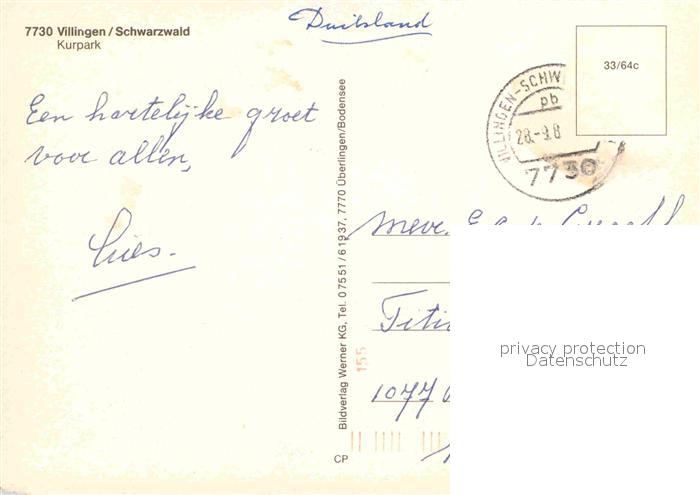 7730 Villingen/Schwarzwald
Kurpark
Duitsland
33/64c
VILLINGEN-SCHW
pb
28.-9.8
7730
Een hartelijke groet
voor allen,
Lies.
Bildverlag Werner KG, Tel. 07551/61937, 7770 Überlingen/Bodensee
155
CP
Mevr.
1077
privacy protection
Datenschutz